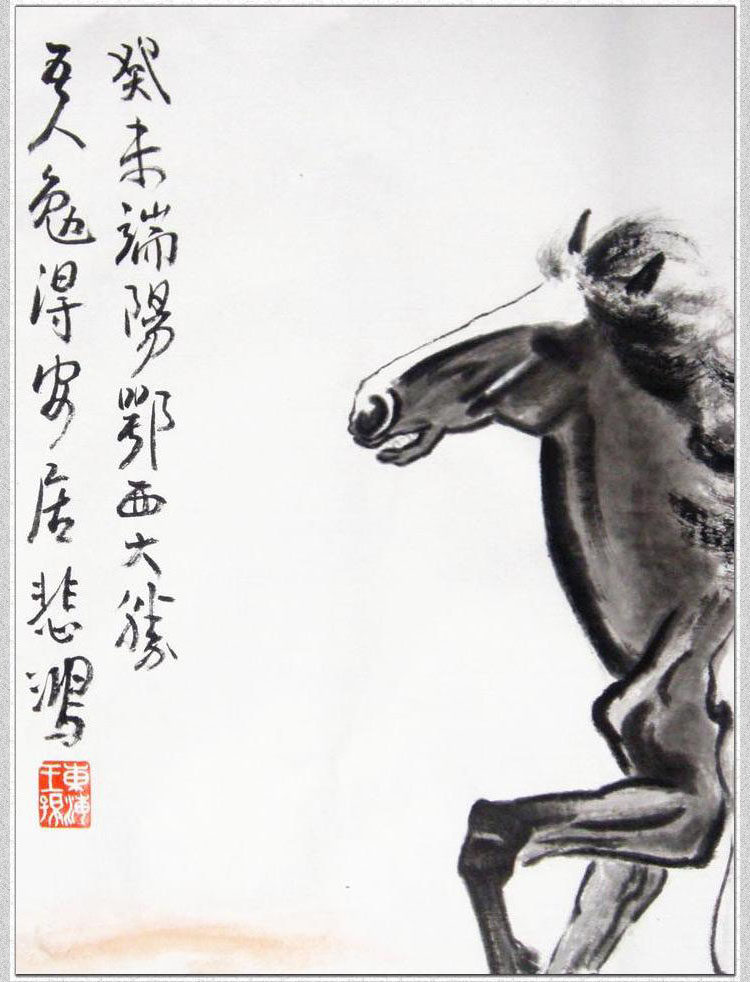 癸未端陽鄂西大勝
吾人勉得安居悲鴻
東海王孫